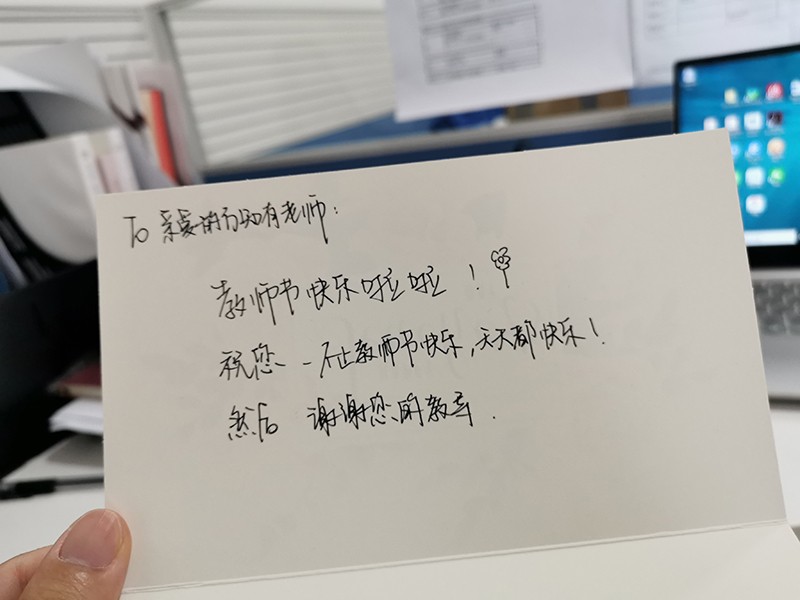 To 亲爱的 有老师:
教师节快乐啦啦!
祝您 - 不止教师节快乐,天天都快乐!
然后 谢谢您的教导.